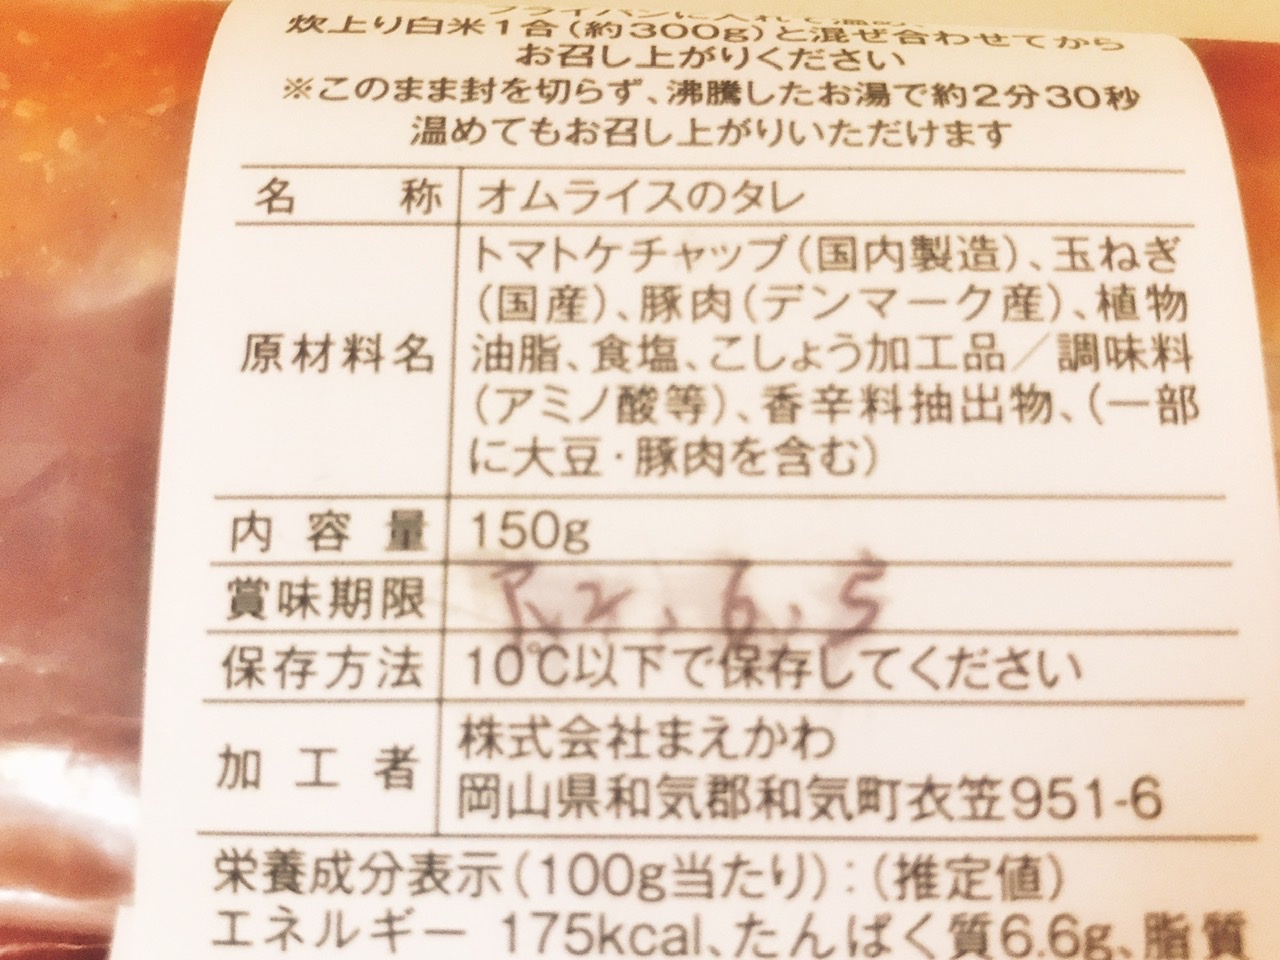 フライパンに入れて温め、
炊上り白米1合(約300g)と混ぜ合わせてから
お召し上がりください
※このまま封を切らず、沸騰したお湯で約2分30秒
温めてもお召し上がりいただけます
名称 オムライスのタレ
原材料名 トマトケチャップ(国内製造)、玉ねぎ
(国産)、豚肉(デンマーク産)、植物
油脂、食塩、こしょう加工品／調味料
(アミノ酸等)、香辛料抽出物、(一部
に大豆・豚肉を含む)
内容量 150g
賞味期限 R2.6.5
保存方法 10℃以下で保存してください
加工者 株式会社まえかわ
岡山県和気郡和気町衣笠951-6
栄養成分表示(100g当たり):(推定値)
エネルギー 175kcal、たんぱく質6.6g、脂質